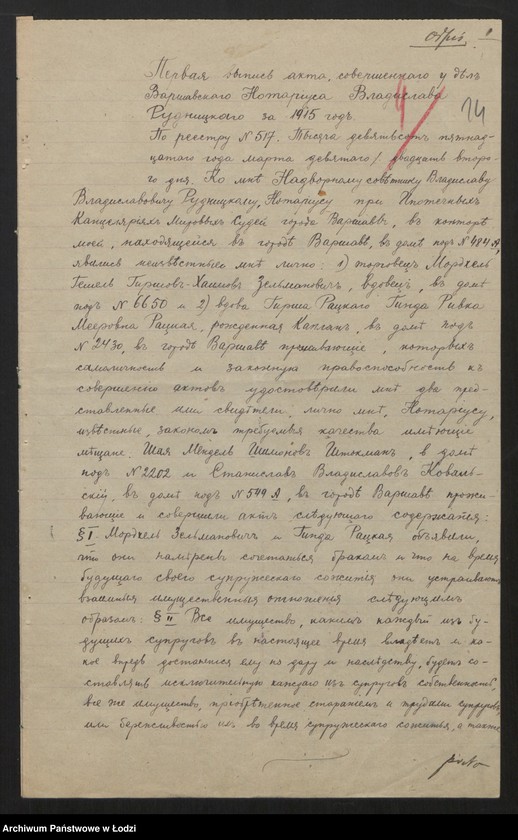 Первая выпись акта, совершеннаго у дѣлъ
Варшавскаго Нотаріуса Владислава
Рудницкаго за 1915 годъ.
24
По реестру № 517. Тысяча девятьсотъ пятнад-
цатаго года марта девятаго / двадцать второ-
го дня. Ко мнѣ Надворному совѣтнику Владиславу
Владиславовичу Рудницкому, Нотаріусу при Ипотечныхъ
Канцеляріяхъ Мировыхъ Судей города Варшавы, въ конторѣ
моей, находящейся въ городѣ Варшавѣ, въ домѣ подъ № 494 А,
явились неизвѣстные мнѣ лично: 1) торговецъ Мордхель
Гемель Гиршовъ-Хаимовъ Зельмановичъ, вдовецъ, въ домѣ
подъ № 6650 и 2) вдова Гирша Рацкаго Гинда Ривка
Мееровна Рацкая, рожденная Капланъ, въ домѣ подъ
№ 2430, въ городѣ Варшавѣ проживающіе, которыхъ
самоличность и законную правоспособность къ
совершенію актовъ удостовѣрили мнѣ два пред-
ставленные ими свидѣтели, лично мнѣ, Нотаріусу,
извѣстные, закономъ требуемыя качества имѣющіе
мѣщане: Шая Мендель Шимоновъ Штокманъ, въ домѣ
подъ № 2202 и Станиславъ Владиславовъ Коваль-
скій, въ домѣ подъ № 549 А, въ городѣ Варшавѣ прожи-
вающіе и совершили актъ слѣдующаго содержанія:
§ I. Мордхель Зельмановичъ и Гинда Рацкая объявили,
что они намѣрены сочетаться бракомъ и что на время
будущаго своего супружескаго сожитія они устраиваютъ
взаимныя имущественныя отношенія слѣдующимъ
образомъ: § II Все имущество, какимъ каждый изъ бу-
дущихъ супруговъ въ настоящее время владѣетъ и ка-
кое впредь достанется ему по дару и наслѣдству, будетъ со-
ставлять исключительную каждаго изъ супруговъ собственность,
все же имущество, пріобрѣтенное стараніемъ и трудами супруговъ
или бережливостью ихъ во время супружескаго сожитія, а также
Archiwum Państwowe w Łodzi